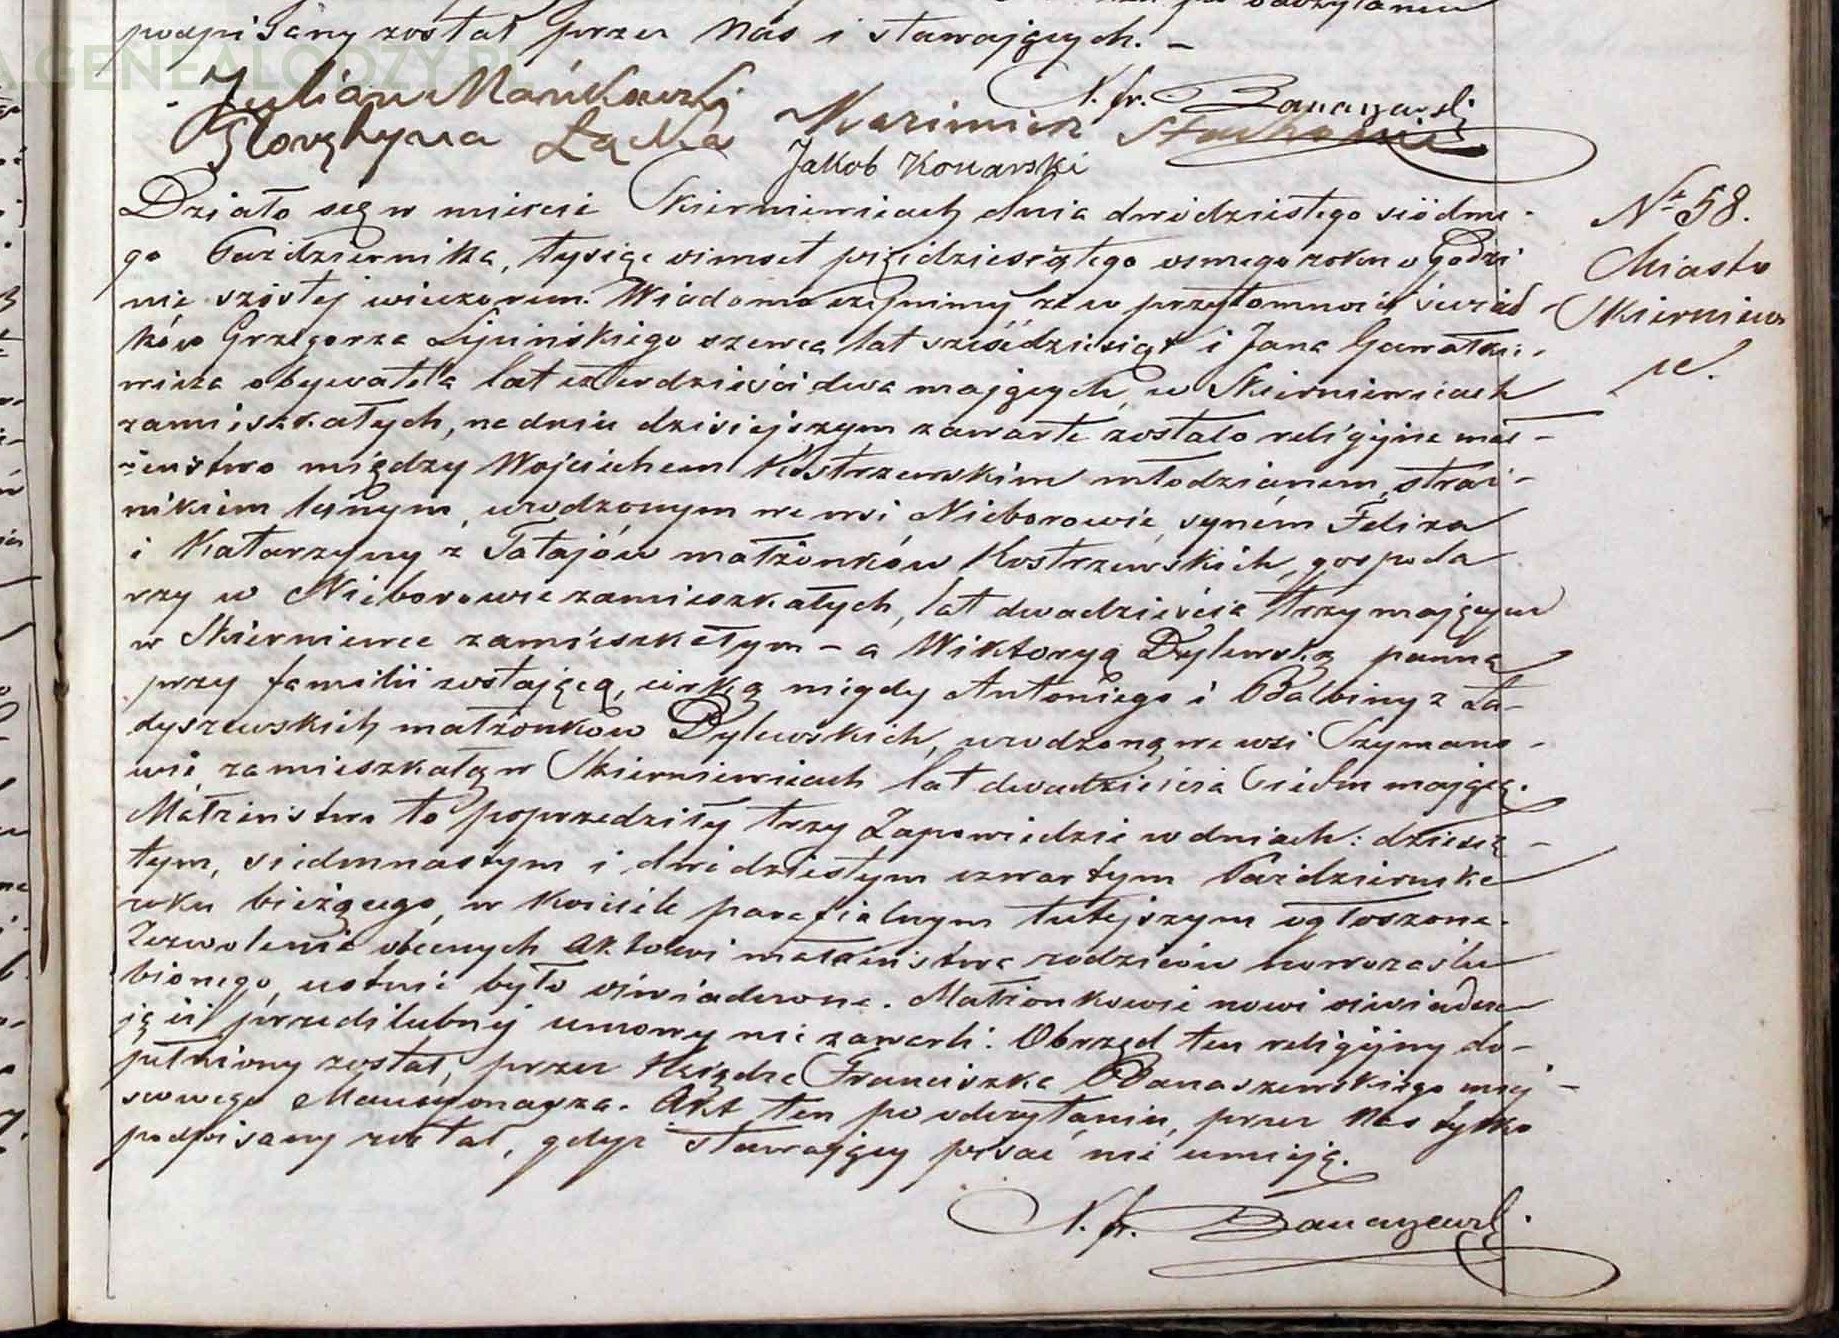 GENEALODZY.PL
podpisany został przez Nas i stawających. –
Julian Mańkowski X. Fr. Banaszewski
Kazimierz
Łącka
Jakob Konarski
Działo się w mieście Skierniewicach dnia dwódziestego siódme-
go Października, tysiąc ośmset pięćdziesiątego ósmego roku o Godzi
nie szóstej wieczorem. Wiadomo czynimy, że w przytomności świad-
ków Grzegorza Lipińskiego szewca lat sześćdziesiąt i Jana Gawałkie-
wicza obywatela lat czterdzieści dwa mających, w Skierniewicach
zamieszkałych, na dniu dzisiejszym zawarte zostało religijne mał-
żeństwo między Wojciechem Kostrzewskim młodzianem, straż-
nikiem leśnym, urodzonym we wsi Nieborowie, synem Felixa
i Katarzyny z Tatajów małżonków Kostrzewskich, gospoda
rzy w Nieborowie zamieszkałych, lat dwadzieścia trzy mającym
w Skierniewce zamieszkałym – a Wiktoryą Dylewską panną
przy familii zostającą, córką niegdy Antoniego i Balbiny z Ła-
dyszewskich małżonków Dylewskich, urodzoną we wsi Szymano-
wie, zamieszkałą w Skierniewicach lat dwadzieścia siedm mającą.
Małżeństwo to poprzedziły trzy Zapowiedzie w dniach: dziesią-
tym, siedmnastym i dwódziestym czwartym Października
roku bieżącego, w kościele parafialnym tutejszym ogłoszone.
Zezwolenie obecnych Aktowi małżeństwa rodziców nowozaślu
bionego, ustnie było oświadczone. Małżonkowie nowi oświadcza
ją iż przedślubnej umowy nie zawarli. Obrzęd ten religijny do-
pełniony został, przez Księdza Franciszka Banaszewskiego miej-
scowego Mansyonarza. Akt ten po odczytaniu, przez Nas tylko
podpisany został, gdyż stawający pisać nie umieją.
X. Fr. Banaszewski
№ 58.
Miasto
Skierniewi
ce.